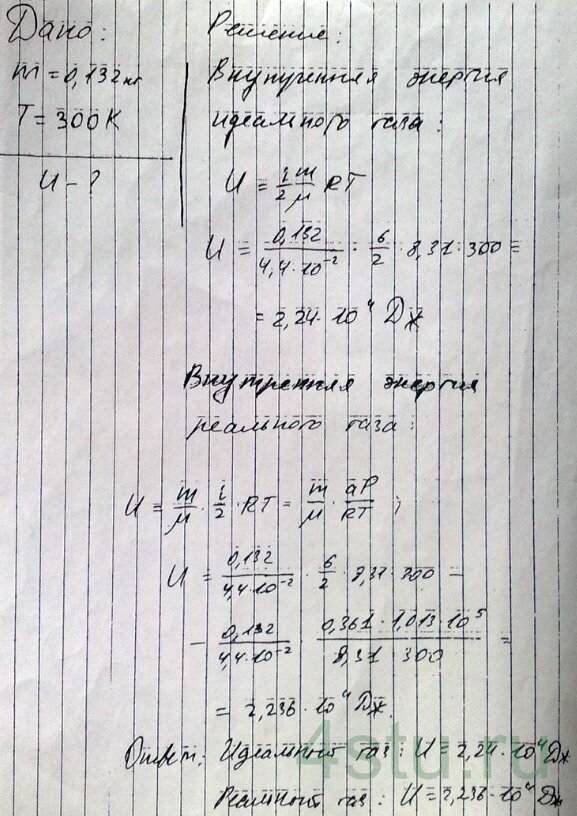 Дано:
m = 0,132 кг
T = 300 K
U - ?
Решение:
Внутренняя энергия
идеального газа:
U = i/2 m/μ RT
U = 0,132/4,4·10⁻² · 6/2 · 8,31 · 300 =
= 2,24 · 10⁴ Дж
Внутренняя энергия
реального газа:
U = m/μ · i/2 · RT = m/μ · aP/RT ;
U = 0,132/4,4·10⁻² · 6/2 · 8,31 · 300 -
- 0,132/4,4·10⁻² · 0,361 · 1,013 · 10⁵/8,31 · 300 =
= 2,236 · 10⁴ Дж.
Ответ: Идеальный газ: U = 2,24 · 10⁴ Дж
Реальный газ: U = 2,236 · 10⁴ Дж
4stu.ru